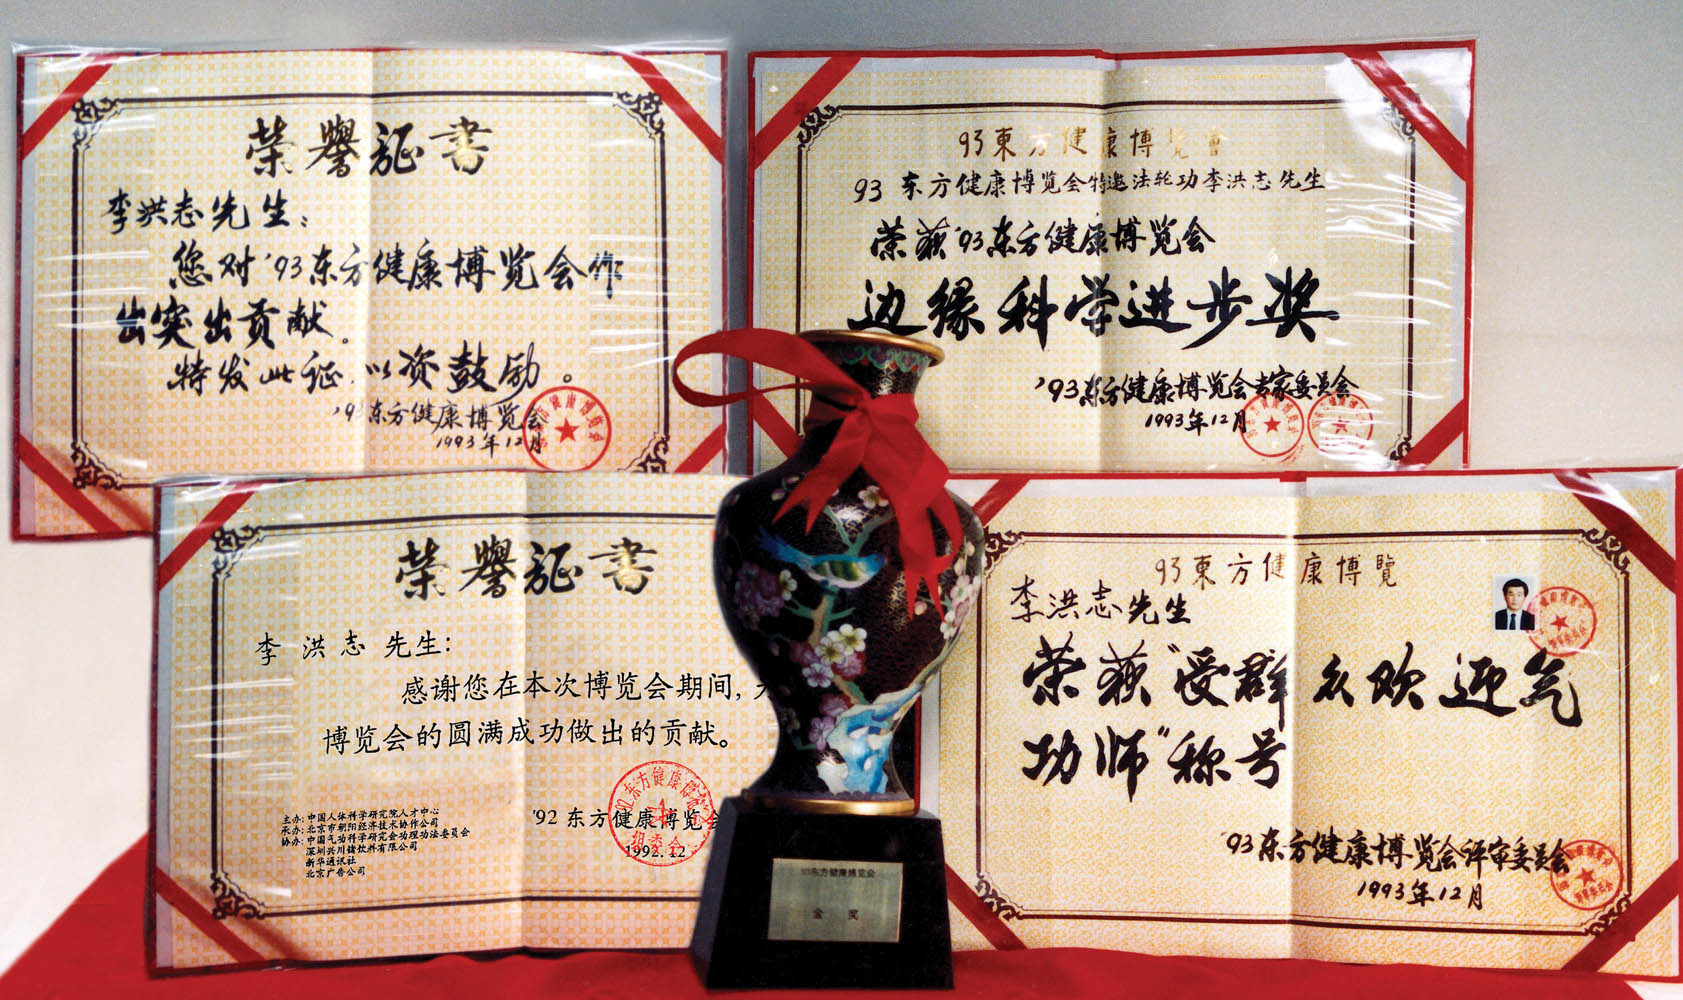 荣誉证书
李洪志先生：
您对'93东方健康博览会作
出突出贡献。
特发此证，以资鼓励。
'93东方健康博览会
1993年12月
93東方健康博覽會
93 东方健康博览会特邀法轮功李洪志先生
荣获'93东方健康博览会
边缘科学进步奖
'93东方健康博览会专家委员会
1993年12月
荣誉证书
李洪志先生:
感谢您在本次博览会期间,
博览会的圆满成功做出的贡献。
主办:中国人体科学研究院人才中心
承办:北京市朝阳经济技术协作公司
协办:中国气功科学研究会功理功法委员会
深圳兴川锗饮料有限公司
新华通讯社
北京广告公司
'92东方健康博览会
1992.12
92东方健康博览会
组委会
93東方健康博覽
李洪志先生
荣获"受群众欢迎气
功师"称号
'93东方健康博览会评审委员会
1993年12月
93东方健康博览会
金奖